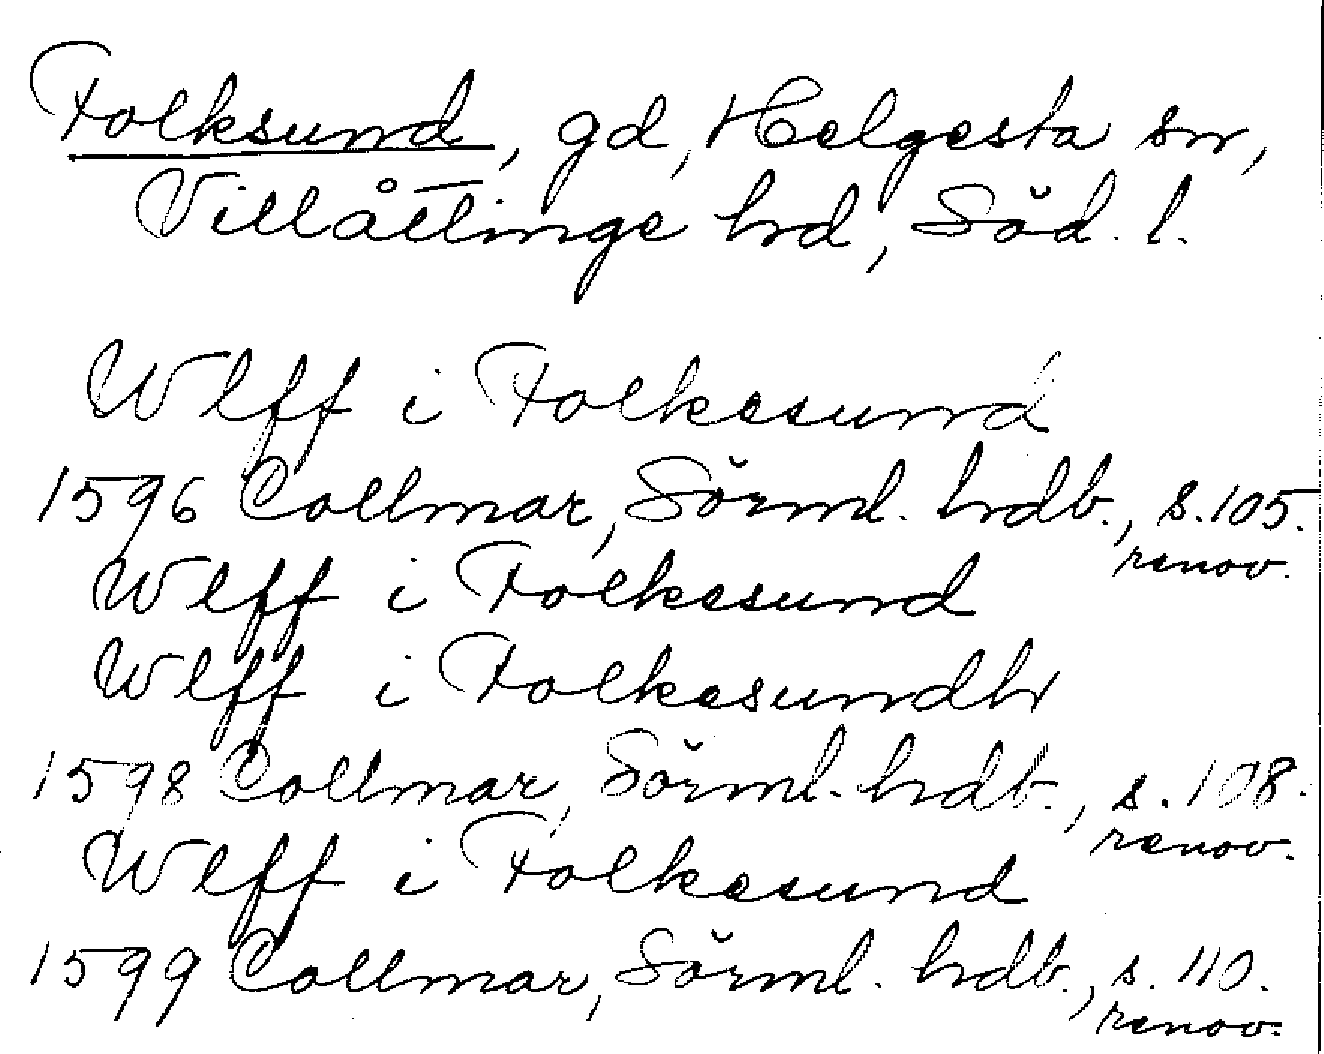 Folksund, gd, Helgesta sn,
Villåttinge hrd, Söd. l.
Wlff i Folkesund
1596 Collmar, Sörml. hrdb., s. 105.
renov.
Wlff i Folkesund
Wlff i Folkesundh
1598 Collmar, Sörml. hrdb., s. 108.
renov.
Wlff i Folkesund
1599 Collmar, Sörml. hrdb., s. 110.
renov.